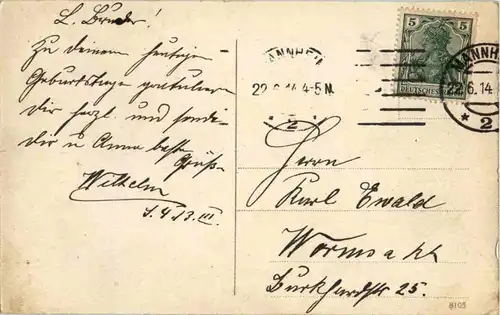 L. Bruder!
Zu deinem heutigen
Geburtstage gratuliere
dir herzl. und sende
dir u Anna beste
Grüße
Wilhelm
MANNHEIM
22.6.14 4-5 N.
* 2 *
5 5
DEUTSCHES
MANNH
22.6.14
* 2
Herrn
Karl Ewald
Worms a Rh
Burkhardstr 25.
8105